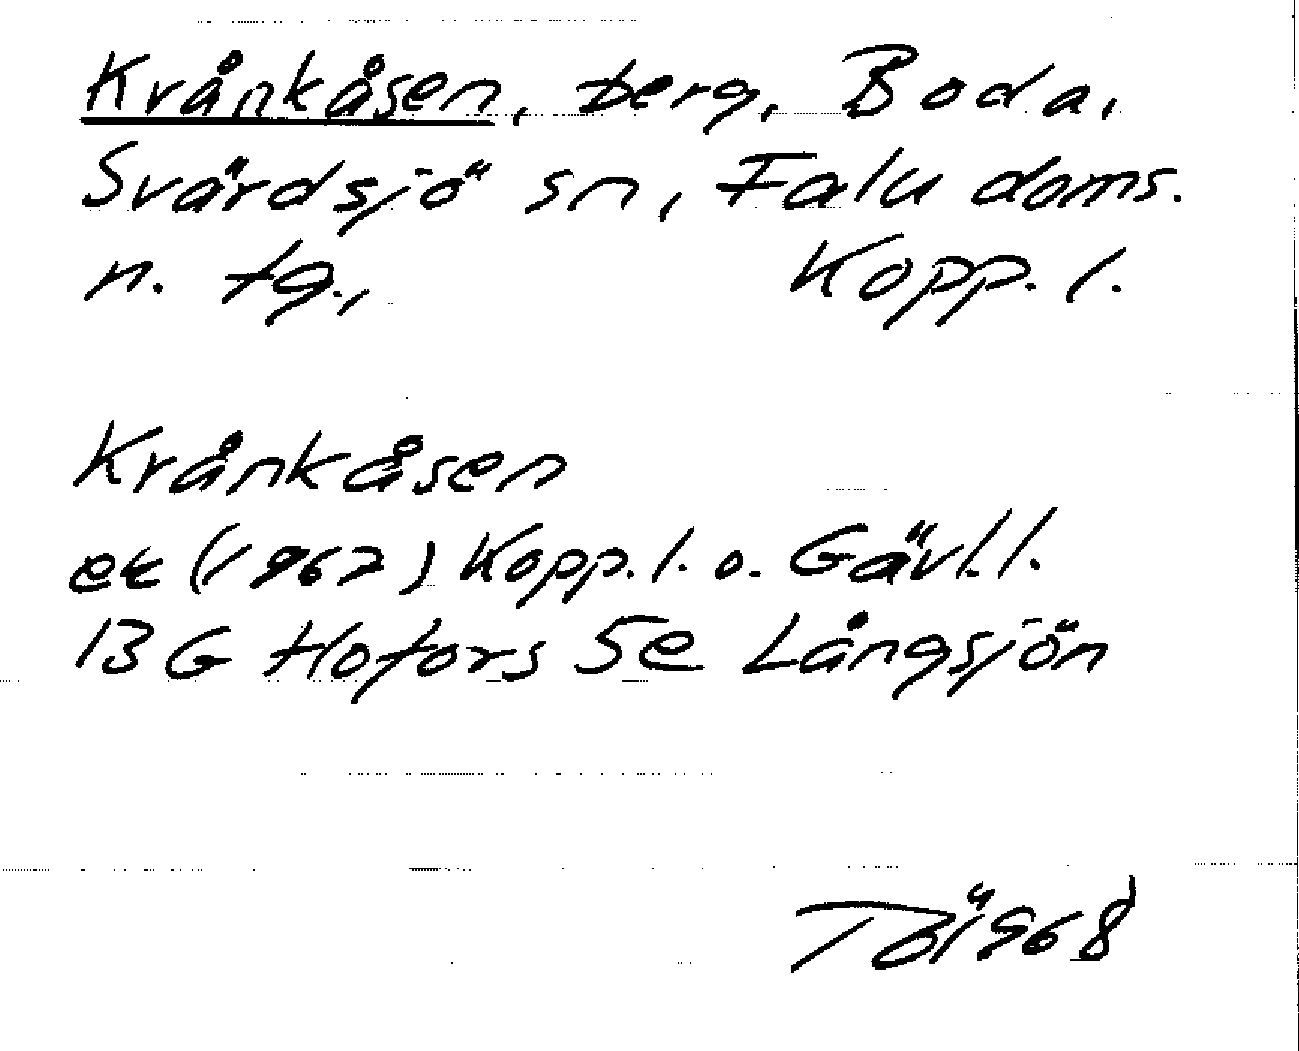 Krånkåsen, berg, Boda,
Svärdsjö sn, Falu doms.
n. tg., Kopp. l.
Krånkåsen
ek (1962) Kopp. l. o. Gävl. l.
13 G Hofors 5e Långsjön
Tö 1968